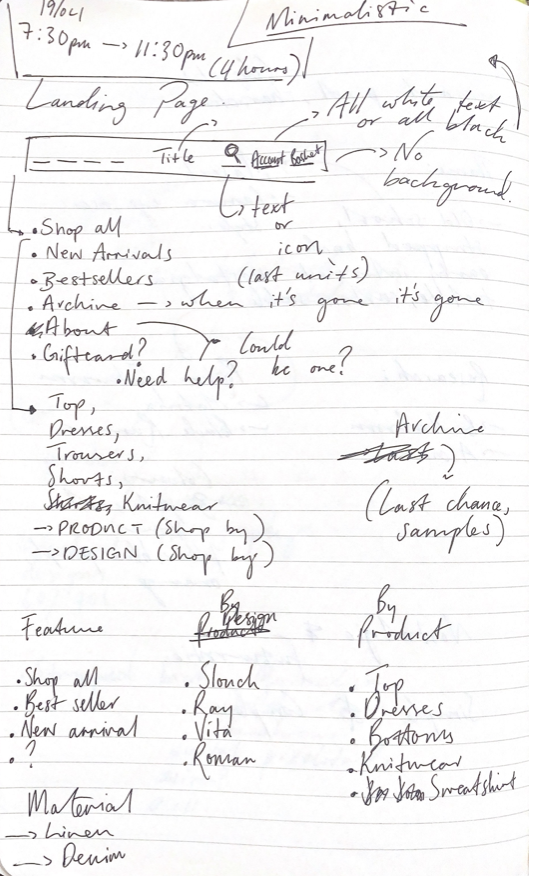 19/Oct
7:30pm → 11:30pm
(4 hours)
Minimalistic
Landing Page.
All white text
or all black
Title Account Basket
No
background.
text
or
icon
• Shop all
• New Arrivals
• Bestsellers (last units)
• Archine → when it's gone it's gone
• About
• Giftcard? Could
be one?
• Need help?
Top,
Dresses,
Trousers,
Shorts,
Knitwear
→ PRODUCT (Shop by)
→ DESIGN (Shop by)
Archine
(Last chance,
samples)
Feature
• Shop all
• Best seller
• New arrival
• ?
By
Design
• Slouch
• Ray
• Vita
• Roman
By
Product
• Top
• Dresses
• Bottoms
• Knitwear
• Sweatshirt
Material
→ Linen
→ Denim